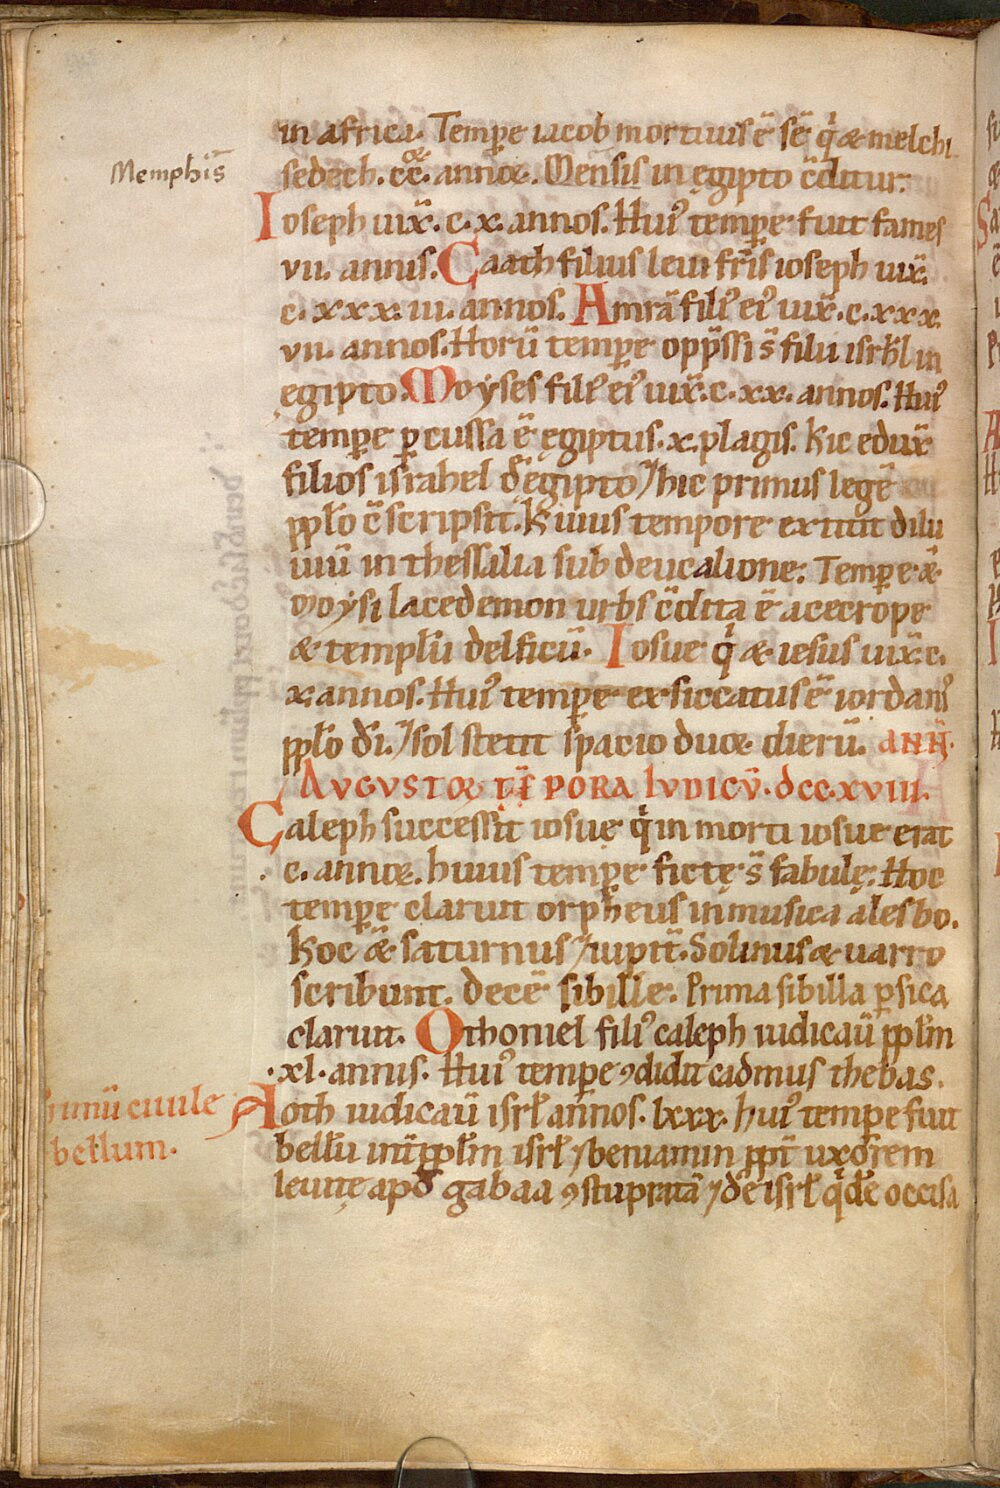 in africa. Tempe iacob mortuus ē sē q̇ & melchi
Memphis̄
sedech. cc̄. annoꝝ. Mensis in ęgipto c̄ditur.
Ioseph uix̄. c. x. annos. Huiꝰ tempe fuit fames
vii. annis. Caath filius leui fr̄is ioseph uix̄.
c. xxx. iii. annos. Amrā filiꝰ eiꝰ uix̄. c. xxx
vii. annos. Horū tempe opp̄ssi s̄ filii isrł in
egipto. Moyses filꝰ eiꝰ uix̄. c. xx. annos. Huiꝰ
tempe ꝑcussa ē ęgiptus. x. plagis. hic edux̄
filios israhel đ ęgipto ⁊ hic primus legē
pp̄lo c̄scripsit. huius tempore extitit dilu
uiū in thessalia sub deucalione. Tempe &
moysi lacedemon urbs c̄dita ē a cecrope
& templū delficū. Iosue q̇ & iesus uix̄. c.
x. annos. Huiꝰ tempe exsiccatus ē iordanꝰ
pp̄lo dī. ⁊ sol stetit spacio duoꝝ dierū. ANN̄.
AVGVSTOꝝ TĒPORA IVDICŪ. dcc.xviii.
Caleph successit iosuę q̇ in morti iosue erat
c. annoꝝ. huius tempe fictę s̄ fabulę. Hoc
tempe claruit orpheus in musica a lesbo.
hoc &̄ saturnus ⁊ iupit̄. Solinus & uarro
scribunt. decē sibille. Prima sibilla ꝑsica
claruit. Othoniel filiꝰ caleph iudicaū pp̄lm
.xl. annis. Huiꝰ tempe ꝯdidit cadmus thebas.
Aoth iudicaū isrł annos. lxxx. huiꝰ tempe fuit
ciuile
bellum.
bellū int̄ pp̄lm isrł ⁊ beniamin ppt̄ uxorem
leuitę apđ gabaa ꝯstupratā ⁊ dē isrł q̇dē occisa